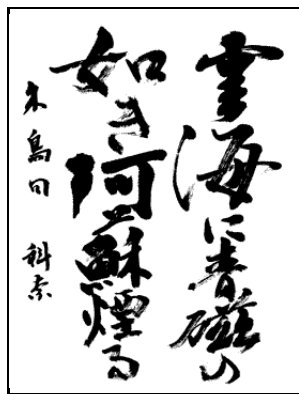 雲海に青磁の
如き阿蘇煙る
水鳥田 科奈